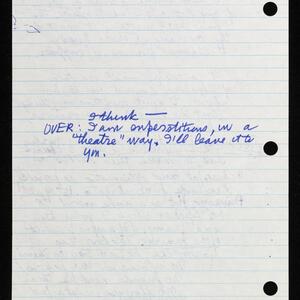 I think —
OVER: I am superstitious, in a
"theatre" way. I'll leave it to
you.